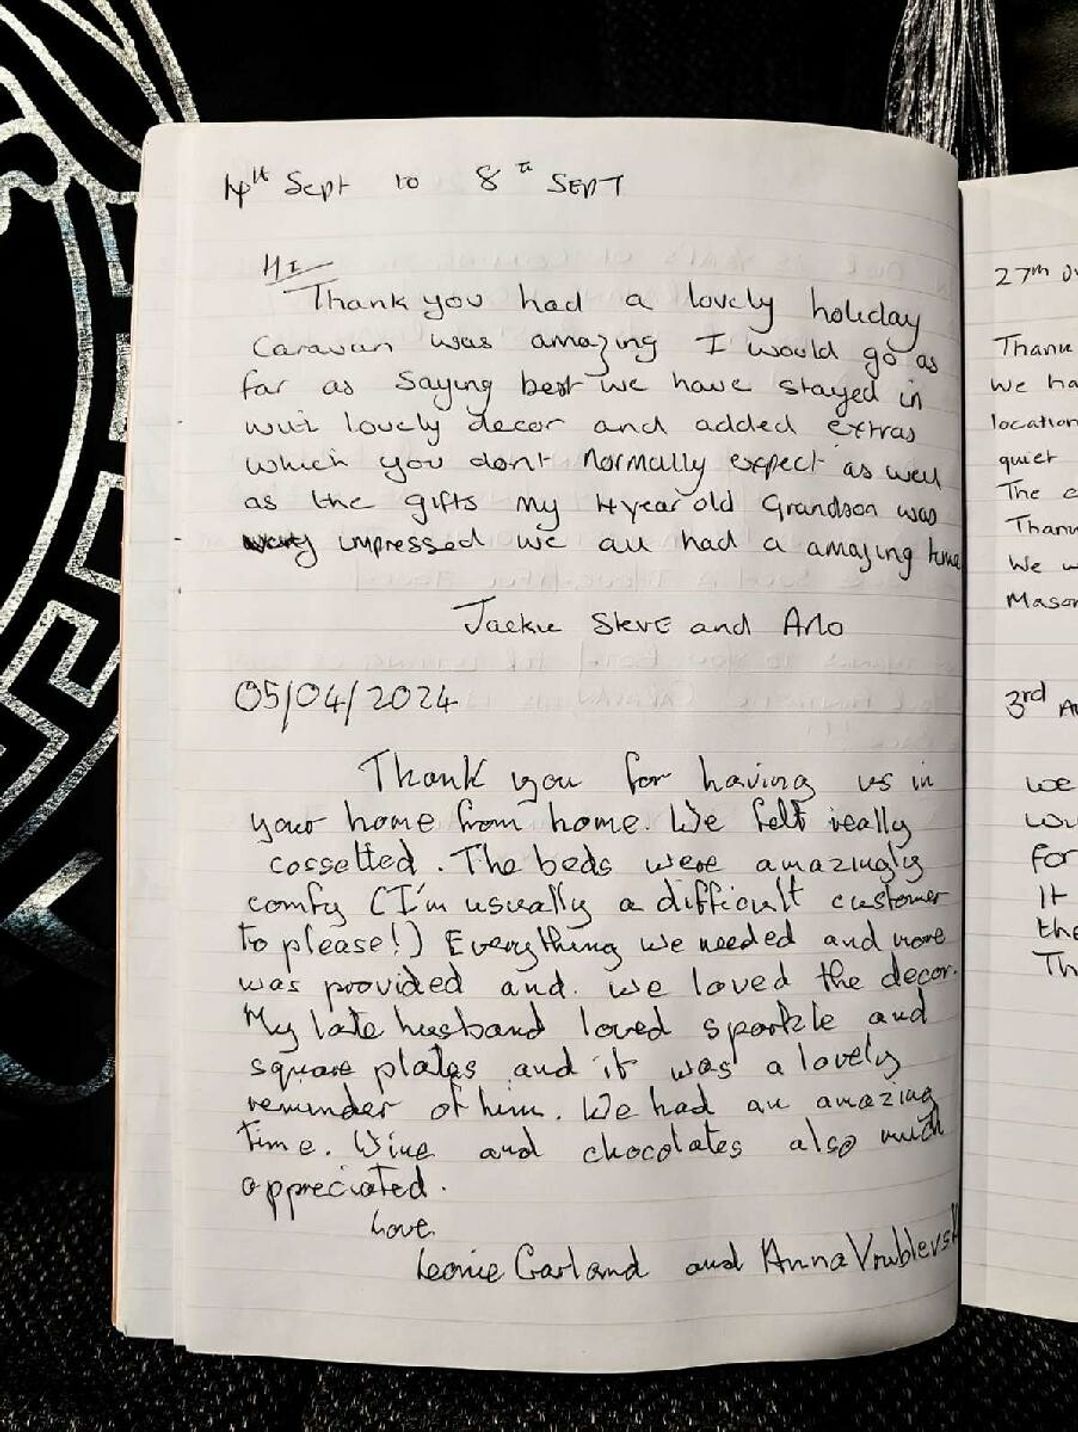 4th Sept to 8th SEPT
HI
Thank you had a lovely holiday
Caravan was amazing I would go as
far as saying best we have stayed in
with lovely decor and added extras
which you dont Normally expect as well
as the gifts my 4 year old Grandson was
very impressed we all had a amazing time
Jackie Steve and Arlo
05/04/2024
Thank you for having us in
your home from home. We felt really
cossetted. The beds were amazingly
comfy (I'm usually a difficult customer
to please!) Everything we needed and more
was provided and. we loved the decor.
My late husband loved sparkle and
square plates and it was a lovely
reminder of him. We had an amazing
time. Wine and chocolates also much
appreciated.
Love
Leonie Garland and Anna Vrublevsk
27th
Thank
we ha
location
quiet
The c
Thank
We w
Mason
3rd A
we
wou
for
It
the
Th